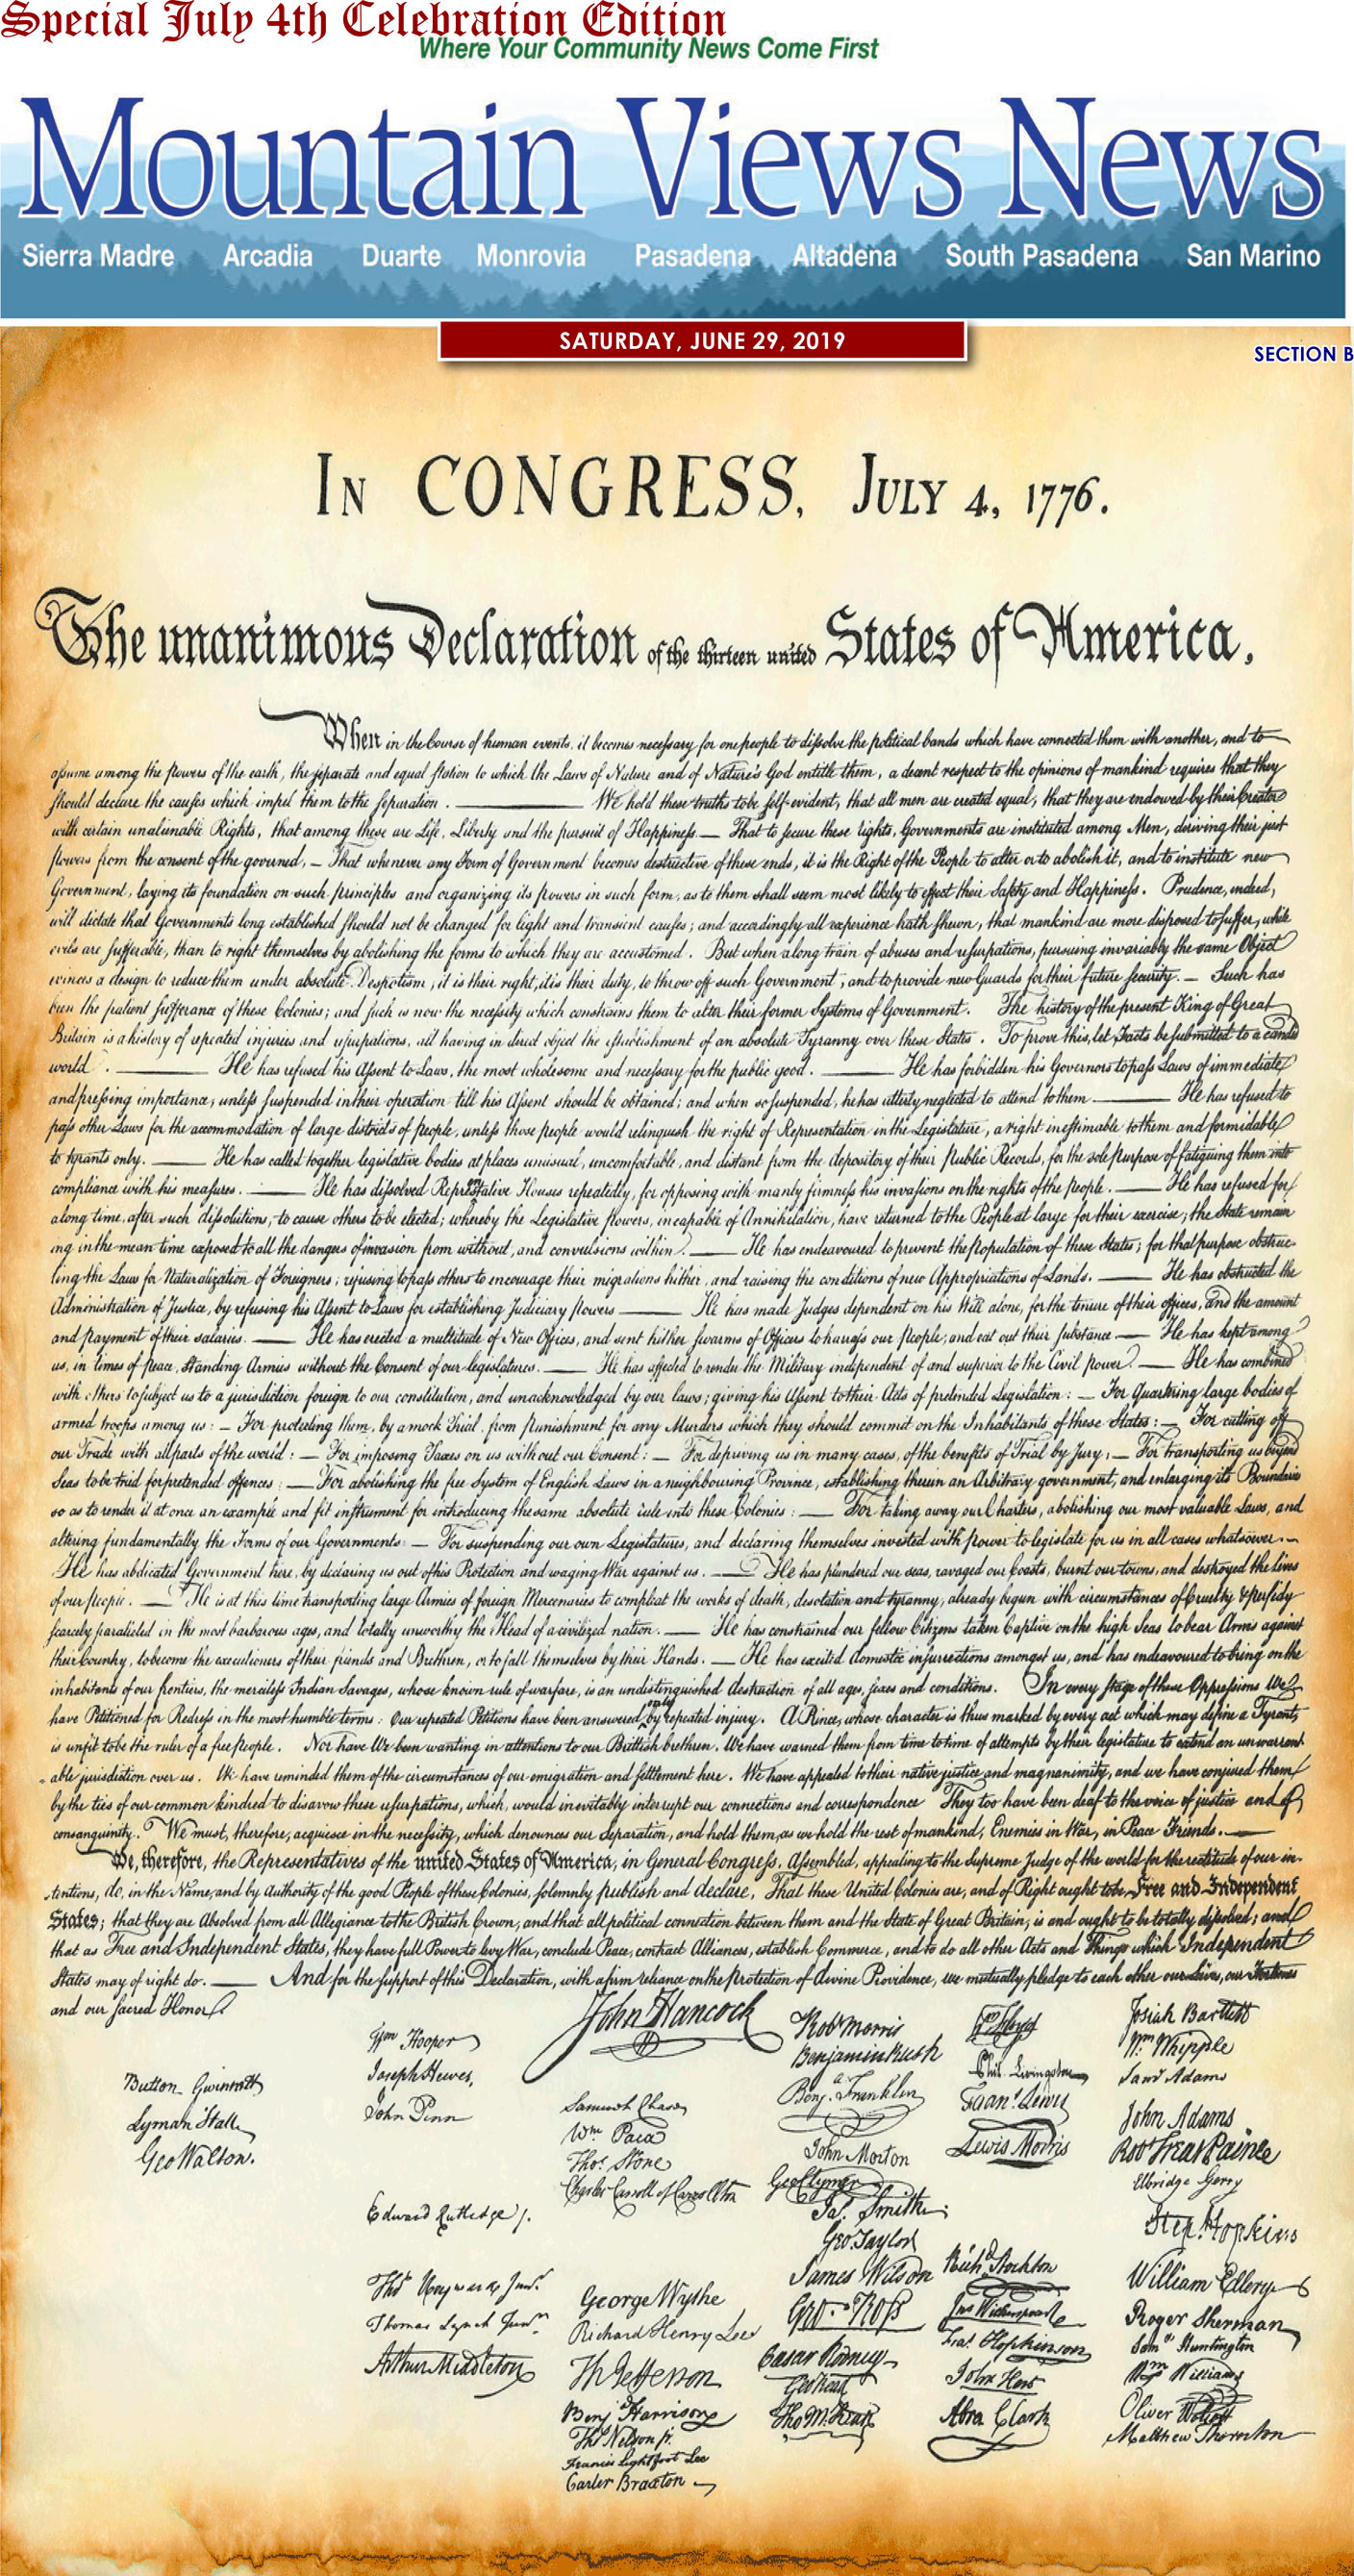 Special July 4th Celebration Edition
Where Your Community News Come First
Mountain Views News
Sierra Madre Arcadia Duarte Monrovia Pasadena Altadena South Pasadena San Marino
SATURDAY, JUNE 29, 2019
SECTION B
In CONGRESS, July 4, 1776.
The unanimous Declaration of the thirteen united States of America,
When in the Course of human events, it becomes necessary for one people to dissolve the political bands which have connected them with another, and to
assume among the powers of the earth, the separate and equal station to which the Laws of Nature and of Nature's God entitle them, a decent respect to the opinions of mankind requires that they
should declare the causes which impel them to the separation. ——— We hold these truths to be self-evident, that all men are created equal, that they are endowed by their Creator
with certain unalienable Rights, that among these are Life, Liberty and the pursuit of Happiness. — That to secure these rights, Governments are instituted among Men, deriving their just
powers from the consent of the governed, — That whenever any Form of Government becomes destructive of these ends, it is the Right of the People to alter or to abolish it, and to institute new
Government, laying its foundation on such principles and organizing its powers in such form, as to them shall seem most likely to effect their Safety and Happiness. Prudence, indeed,
will dictate that Governments long established should not be changed for light and transient causes; and accordingly all experience hath shewn, that mankind are more disposed to suffer, while
evils are sufferable, than to right themselves by abolishing the forms to which they are accustomed. But when a long train of abuses and usurpations, pursuing invariably the same Object
evinces a design to reduce them under absolute Despotism, it is their right, it is their duty, to throw off such Government, and to provide new Guards for their future security. — Such has
been the patient sufferance of these Colonies; and such is now the necessity which constrains them to alter their former Systems of Government. The history of the present King of Great
Britain is a history of repeated injuries and usurpations, all having in direct object the establishment of an absolute Tyranny over these States. To prove this, let Facts be submitted to a candid
world. ——— He has refused his Assent to Laws, the most wholesome and necessary for the public good. ——— He has forbidden his Governors to pass Laws of immediate
and pressing importance, unless suspended in their operation till his Assent should be obtained; and when so suspended, he has utterly neglected to attend to them. ——— He has refused to
pass other Laws for the accommodation of large districts of people, unless those people would relinquish the right of Representation in the Legislature, a right inestimable to them and formidable
to tyrants only. ——— He has called together legislative bodies at places unusual, uncomfortable, and distant from the depository of their Public Records, for the sole purpose of fatiguing them into
compliance with his measures. ——— He has dissolved Representative Houses repeatedly, for opposing with manly firmness his invasions on the rights of the people. ——— He has refused for
a long time, after such dissolutions, to cause others to be elected; whereby the Legislative powers, incapable of Annihilation, have returned to the People at large for their exercise; the State remain
ing in the mean time exposed to all the dangers of invasion from without, and convulsions within. ——— He has endeavoured to prevent the population of these States; for that purpose obstruc-
ting the Laws for Naturalization of Foreigners; refusing to pass others to encourage their migrations hither, and raising the conditions of new Appropriations of Lands. ——— He has obstructed the
Administration of Justice, by refusing his Assent to Laws for establishing Judiciary powers ——— He has made Judges dependent on his Will alone, for the tenure of their offices, and the amount
and payment of their salaries. ——— He has erected a multitude of New Offices, and sent hither swarms of Officers to harrass our people, and eat out their substance — He has kept among
us, in times of peace, Standing Armies without the Consent of our legislatures. ——— He has affected to render the Military independent of and superior to the Civil power. — He has combined
with others to subject us to a jurisdiction foreign to our constitution, and unacknowledged by our laws; giving his Assent to their Acts of pretended Legislation: — For Quartering large bodies of
armed troops among us: — For protecting them, by a mock Trial, from punishment for any Murders which they should commit on the Inhabitants of these States: — For cutting off
our Trade with all parts of the world: — For imposing Taxes on us without our Consent: — For depriving us in many cases, of the benefits of Trial by Jury; — For transporting us beyond
Seas to be tried for pretended offences: — For abolishing the free System of English Laws in a neighbouring Province, establishing therein an Arbitrary government, and enlarging its Boundaries
so as to render it at once an example and fit instrument for introducing the same absolute rule into these Colonies: — For taking away our Charters, abolishing our most valuable Laws, and
altering fundamentally the Forms of our Governments: — For suspending our own Legislatures, and declaring themselves invested with power to legislate for us in all cases whatsoever. —
He has abdicated Government here, by declaring us out of his Protection and waging War against us. — He has plundered our seas, ravaged our Coasts, burnt our towns, and destroyed the lives
of our people. — He is at this time transporting large Armies of foreign Mercenaries to compleat the works of death, desolation and tyranny, already begun with circumstances of Cruelty & perfidy
scarcely paralleled in the most barbarous ages, and totally unworthy the Head of a civilized nation. — He has constrained our fellow Citizens taken Captive on the high Seas to bear Arms against
their Country, to become the executioners of their friends and Brethren, or to fall themselves by their Hands. — He has excited domestic insurrections amongst us, and has endeavoured to bring on the
inhabitants of our frontiers, the merciless Indian Savages, whose known rule of warfare, is an undistinguished destruction of all ages, sexes and conditions. In every stage of these Oppressions We
have Petitioned for Redress in the most humble terms: Our repeated Petitions have been answered only by repeated injury. A Prince, whose character is thus marked by every act which may define a Tyrant,
is unfit to be the ruler of a free people. Nor have We been wanting in attentions to our Brittish brethren. We have warned them from time to time of attempts by their legislature to extend an unwarrant
able jurisdiction over us. We have reminded them of the circumstances of our emigration and settlement here. We have appealed to their native justice and magnanimity, and we have conjured them
by the ties of our common kindred to disavow these usurpations, which, would inevitably interrupt our connections and correspondence They too have been deaf to the voice of justice and of
consanguinity. We must, therefore, acquiesce in the necessity, which denounces our Separation, and hold them, as we hold the rest of mankind, Enemies in War, in Peace Friends. —
We, therefore, the Representatives of the united States of America, in General Congress, Assembled, appealing to the Supreme Judge of the world for the rectitude of our in-
tentions, do, in the Name, and by Authority of the good People of these Colonies, solemnly publish and declare, That these United Colonies are, and of Right ought to be Free and Independent
States; that they are Absolved from all Allegiance to the British Crown, and that all political connection between them and the State of Great Britain, is and ought to be totally dissolved; and
that as Free and Independent States, they have full Power to levy War, conclude Peace, contract Alliances, establish Commerce, and to do all other Acts and Things which Independent
States may of right do. ——— And for the support of this Declaration, with a firm reliance on the protection of divine Providence, we mutually pledge to each other our Lives, our Fortunes
and our sacred Honor.
Button Gwinnett
Lyman Hall
Geo Walton.
Wm Hooper
Joseph Hewes,
John Penn
Edward Rutledge /.
Thos Heyward Junr.
Thomas Lynch Junr.
Arthur Middleton
John Hancock
Samuel Chase
Wm Paca
Thos Stone
Charles Carroll of Carrollton
George Wythe
Richard Henry Lee
Th Jefferson
Benj Harrison
Thos Nelson jr.
Francis Lightfoot Lee
Carter Braxton
Robt Morris
Benjamin Rush
Benja. Franklin
John Morton
Geo Clymer
Jas. Smith
Geo. Taylor
James Wilson
Geo. Ross
Caesar Rodney
Geo Read
Tho M:Kean
Wm Floyd
Phil. Livingston
Frans. Lewis
Lewis Morris
Richd. Stockton
Jno Witherspoon
Fras. Hopkinson
John Hart
Abra Clark
Josiah Bartlett
Wm Whipple
Saml Adams
John Adams
Robt Treat Paine
Elbridge Gerry
Step. Hopkins
William Ellery
Roger Sherman
Saml Huntington
Wm Williams
Oliver Wolcott
Matthew Thornton